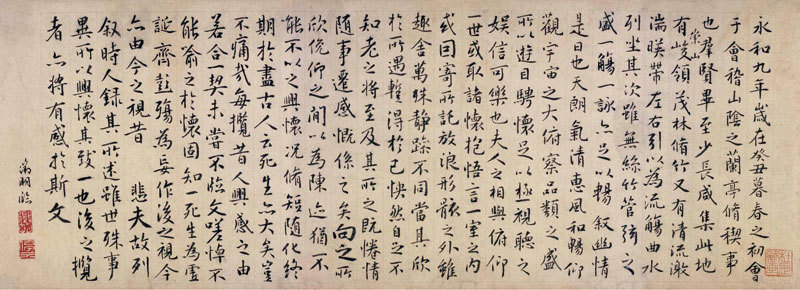 永和九年歲在癸丑暮春之初會
于會稽山陰之蘭亭脩禊事
也羣賢畢至少長咸集此地
有崇山峻領茂林脩竹又有清流激
湍暎帶左右引以為流觴曲水
列坐其次雖無絲竹管弦之
盛一觴一詠亦足以暢叙幽情
是日也天朗氣清惠風和暢仰
觀宇宙之大俯察品類之盛
所以遊目騁懷足以極視聽之
娛信可樂也夫人之相與俯仰
一世或取諸懷抱悟言一室之內
或因寄所託放浪形骸之外雖
趣舍萬殊靜躁不同當其欣
於所遇蹔得於己怏然自足不
知老之將至及其所之既惓情
隨事遷感慨係之矣向之所
欣俛仰之閒以為陳迹猶不
能不以之興懷況脩短隨化終
期於盡古人云死生亦大矣豈
不痛哉每攬昔人興感之由
若合一契未嘗不臨文嗟悼不
能喻之於懷固知一死生為虛
誕齊彭殤為妄作後之視今
亦由今之視昔 悲夫故列
叙時人錄其所述雖世殊事
異所以興懷其致一也後之攬
者亦將有感於斯文
徵明臨